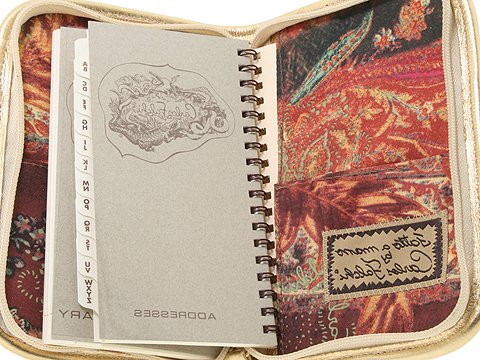 AB
CD
EF
GH
IJ
KL
MN
OP
QR
ST
UV
WXYZ
ADDRESSES
ARY
Fatto a mano
by
Carlos Falchi